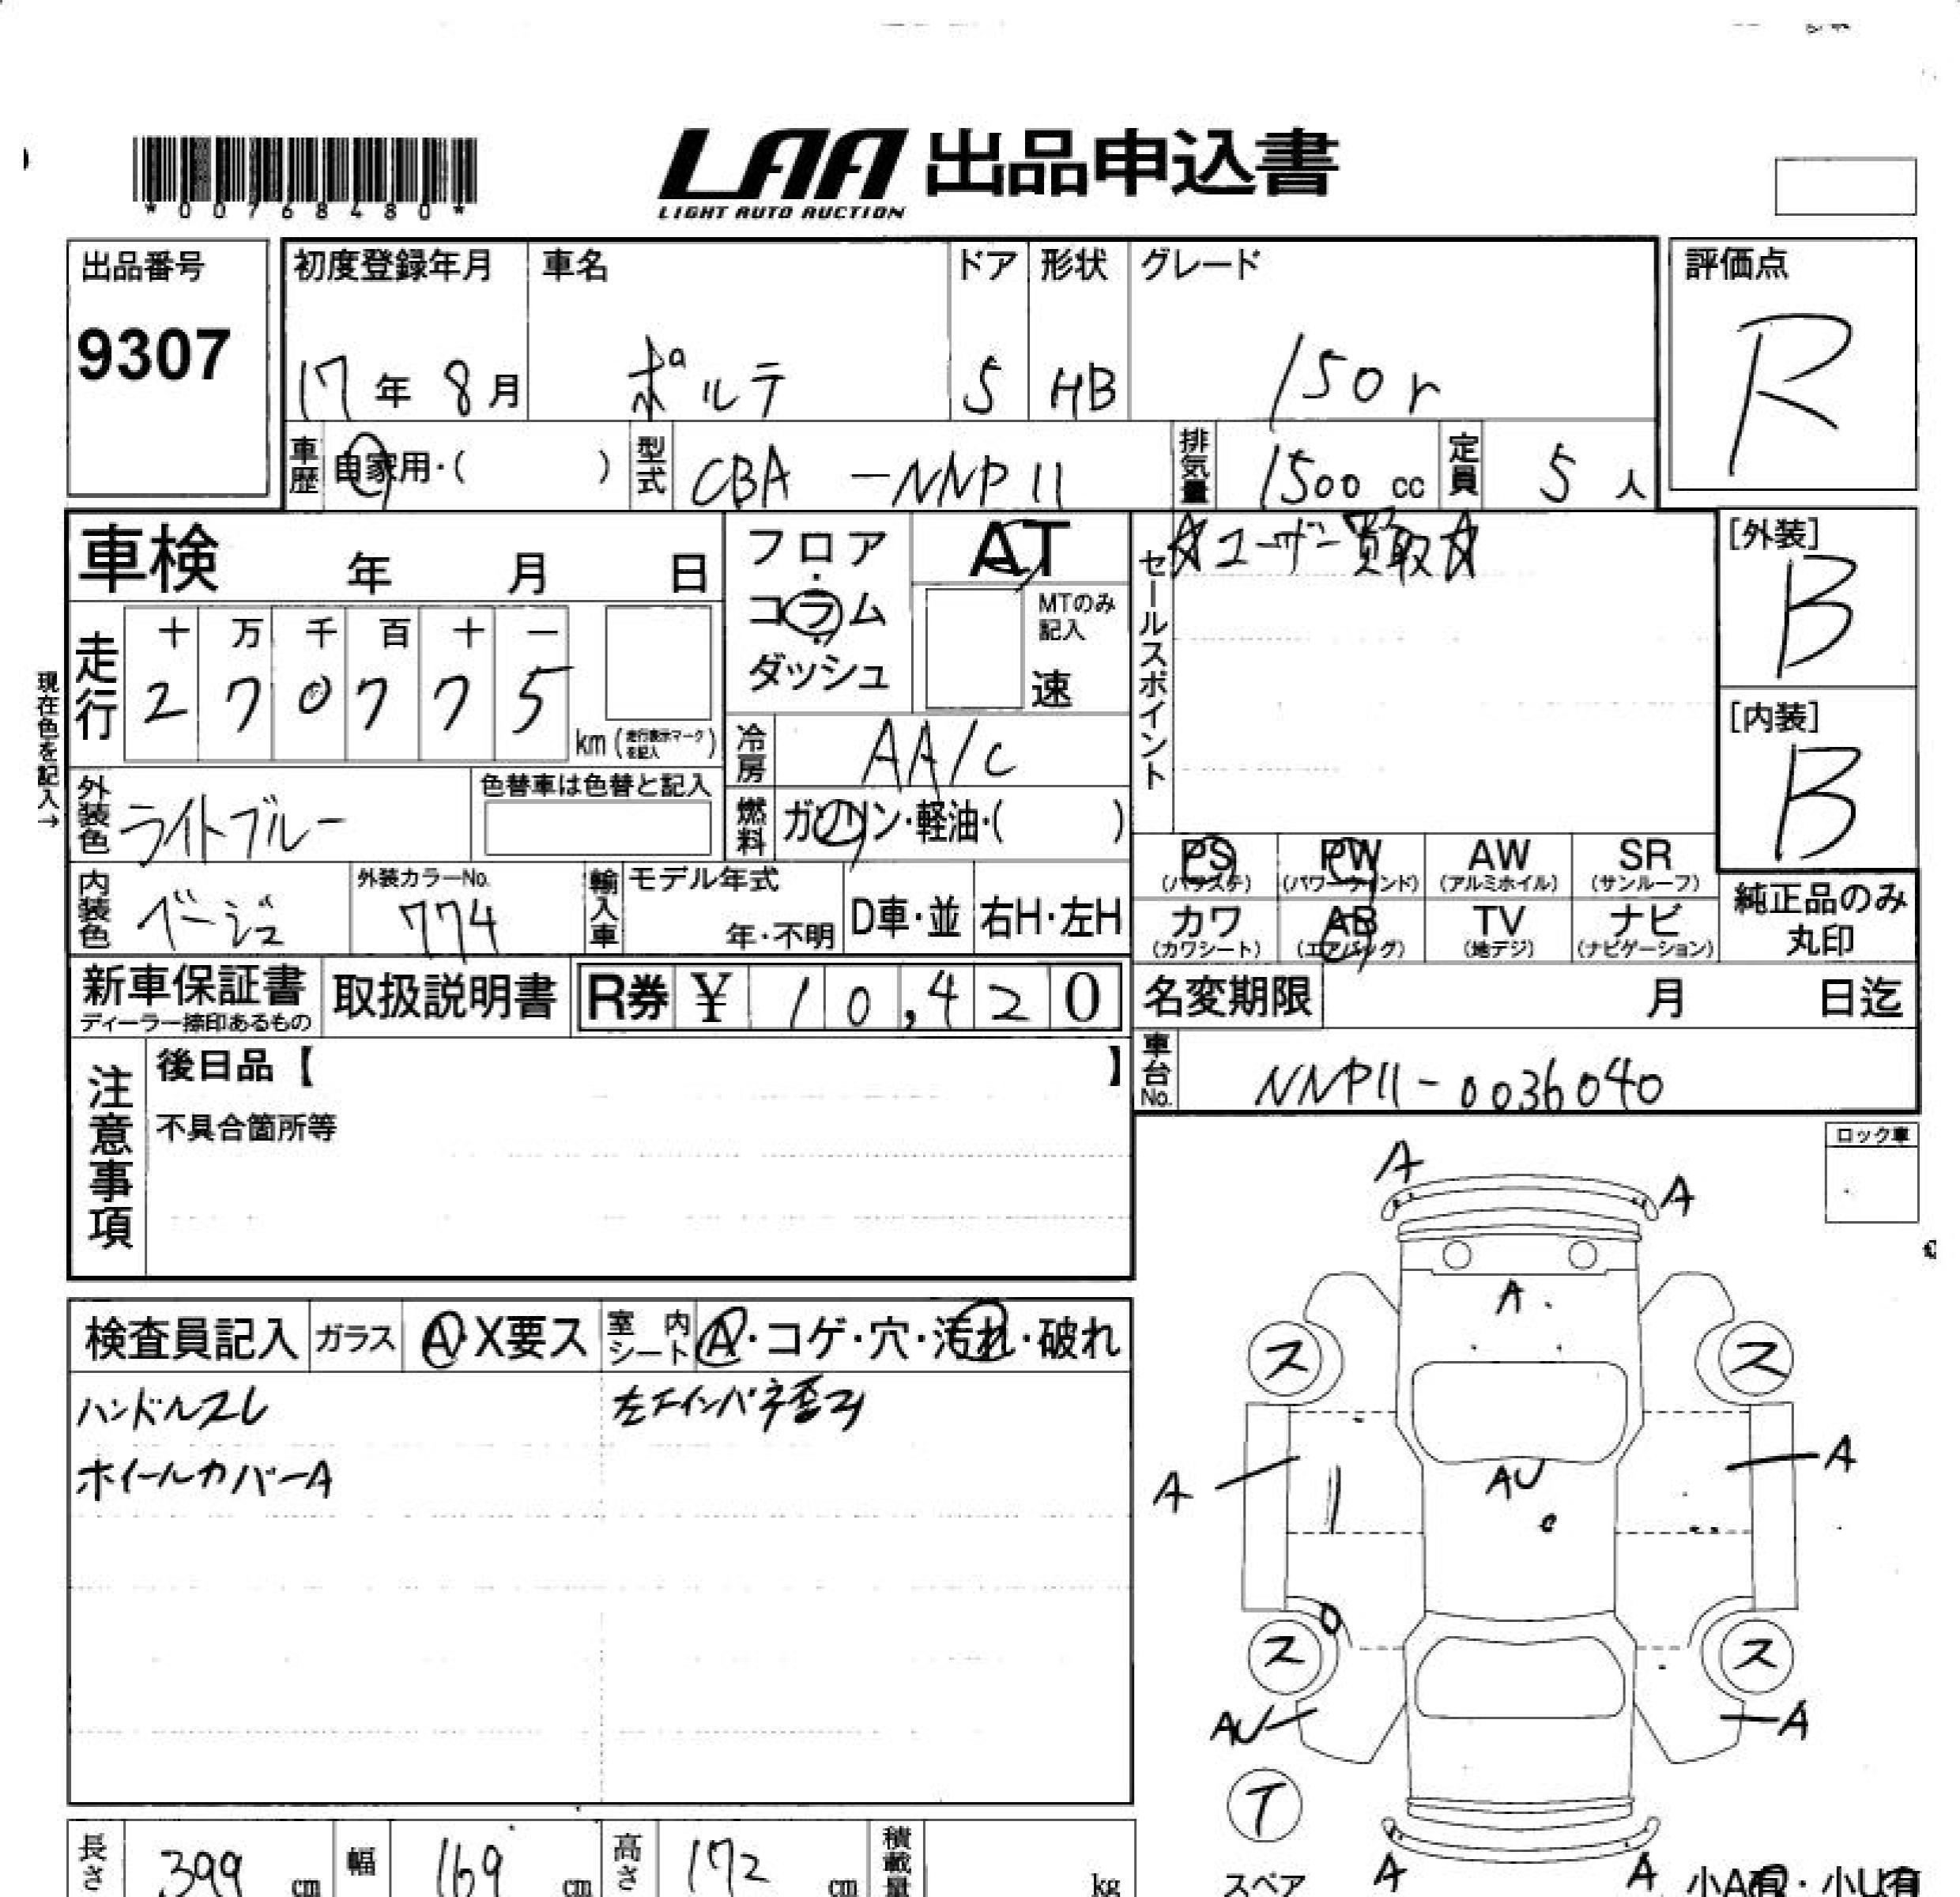 *00768480*
LAA 出品申込書
LIGHT AUTO AUCTION
出品番号
9307
初度登録年月
17年 8月
車名
ポルテ
ドア
5
形状
HB
グレード
150r
評価点
R
車歴 自家用・( )
型式 CBA -NNP11
排気量 1500 cc
定員 5 人
車検 年 月 日
フロア・コラム・ダッシュ
AT
MTのみ記入
速
セールスポイント
☆ユーザー買取☆
[外装]
B
[内装]
B
現在色を記入→
走行
十 万 千 百 十 一
2 7 0 7 7 5
km (走行表示マークを記入)
冷房 AA/C
外装色 ライトブルー
色替車は色替と記入
燃料 ガソリン・軽油・( )
PS (パワステ)
PW (パワーウィンド)
AW (アルミホイル)
SR (サンルーフ)
内装色 ベージュ
外装カラーNo.
774
輸入車
モデル年式
年・不明
D車・並
右H・左H
カワ (カワシート)
AB (エアバッグ)
TV (地デジ)
ナビ (ナビゲーション)
純正品のみ
丸印
新車保証書
ディーラー捺印あるもの
取扱説明書
R券 ¥ 10,420
名変期限 月 日迄
車台No. NNP11-0036040
注意事項
後日品【 】
不具合箇所等
ロック車
検査員記入
ガラス A・X要ス
室内シート A・コゲ・穴・汚れ・破れ
ハンドルスレ
ホイールカバーA
A
A
A
ス
ス
A
A
AU
ス
ス
AU
A
T
スペア
A
A
小A有・小U有
長さ 399 cm
幅 169 cm
高さ 172 cm
積載量 kg